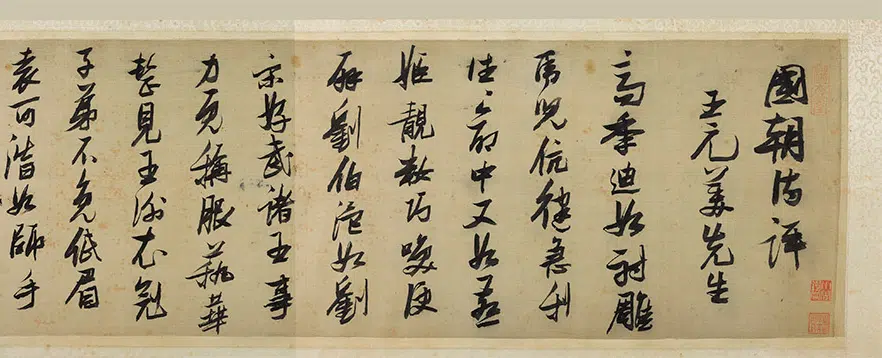 國朝詩評
王元美先生
高季迪如射雕
兒伉健急利
往々命中又如燕
姬靚粧巧笑便
辟劉伯溫如劉
宋好武諸王事
力既稱服藝華
整見王謝衣冠
子弟不免低眉
袁可潛如師手